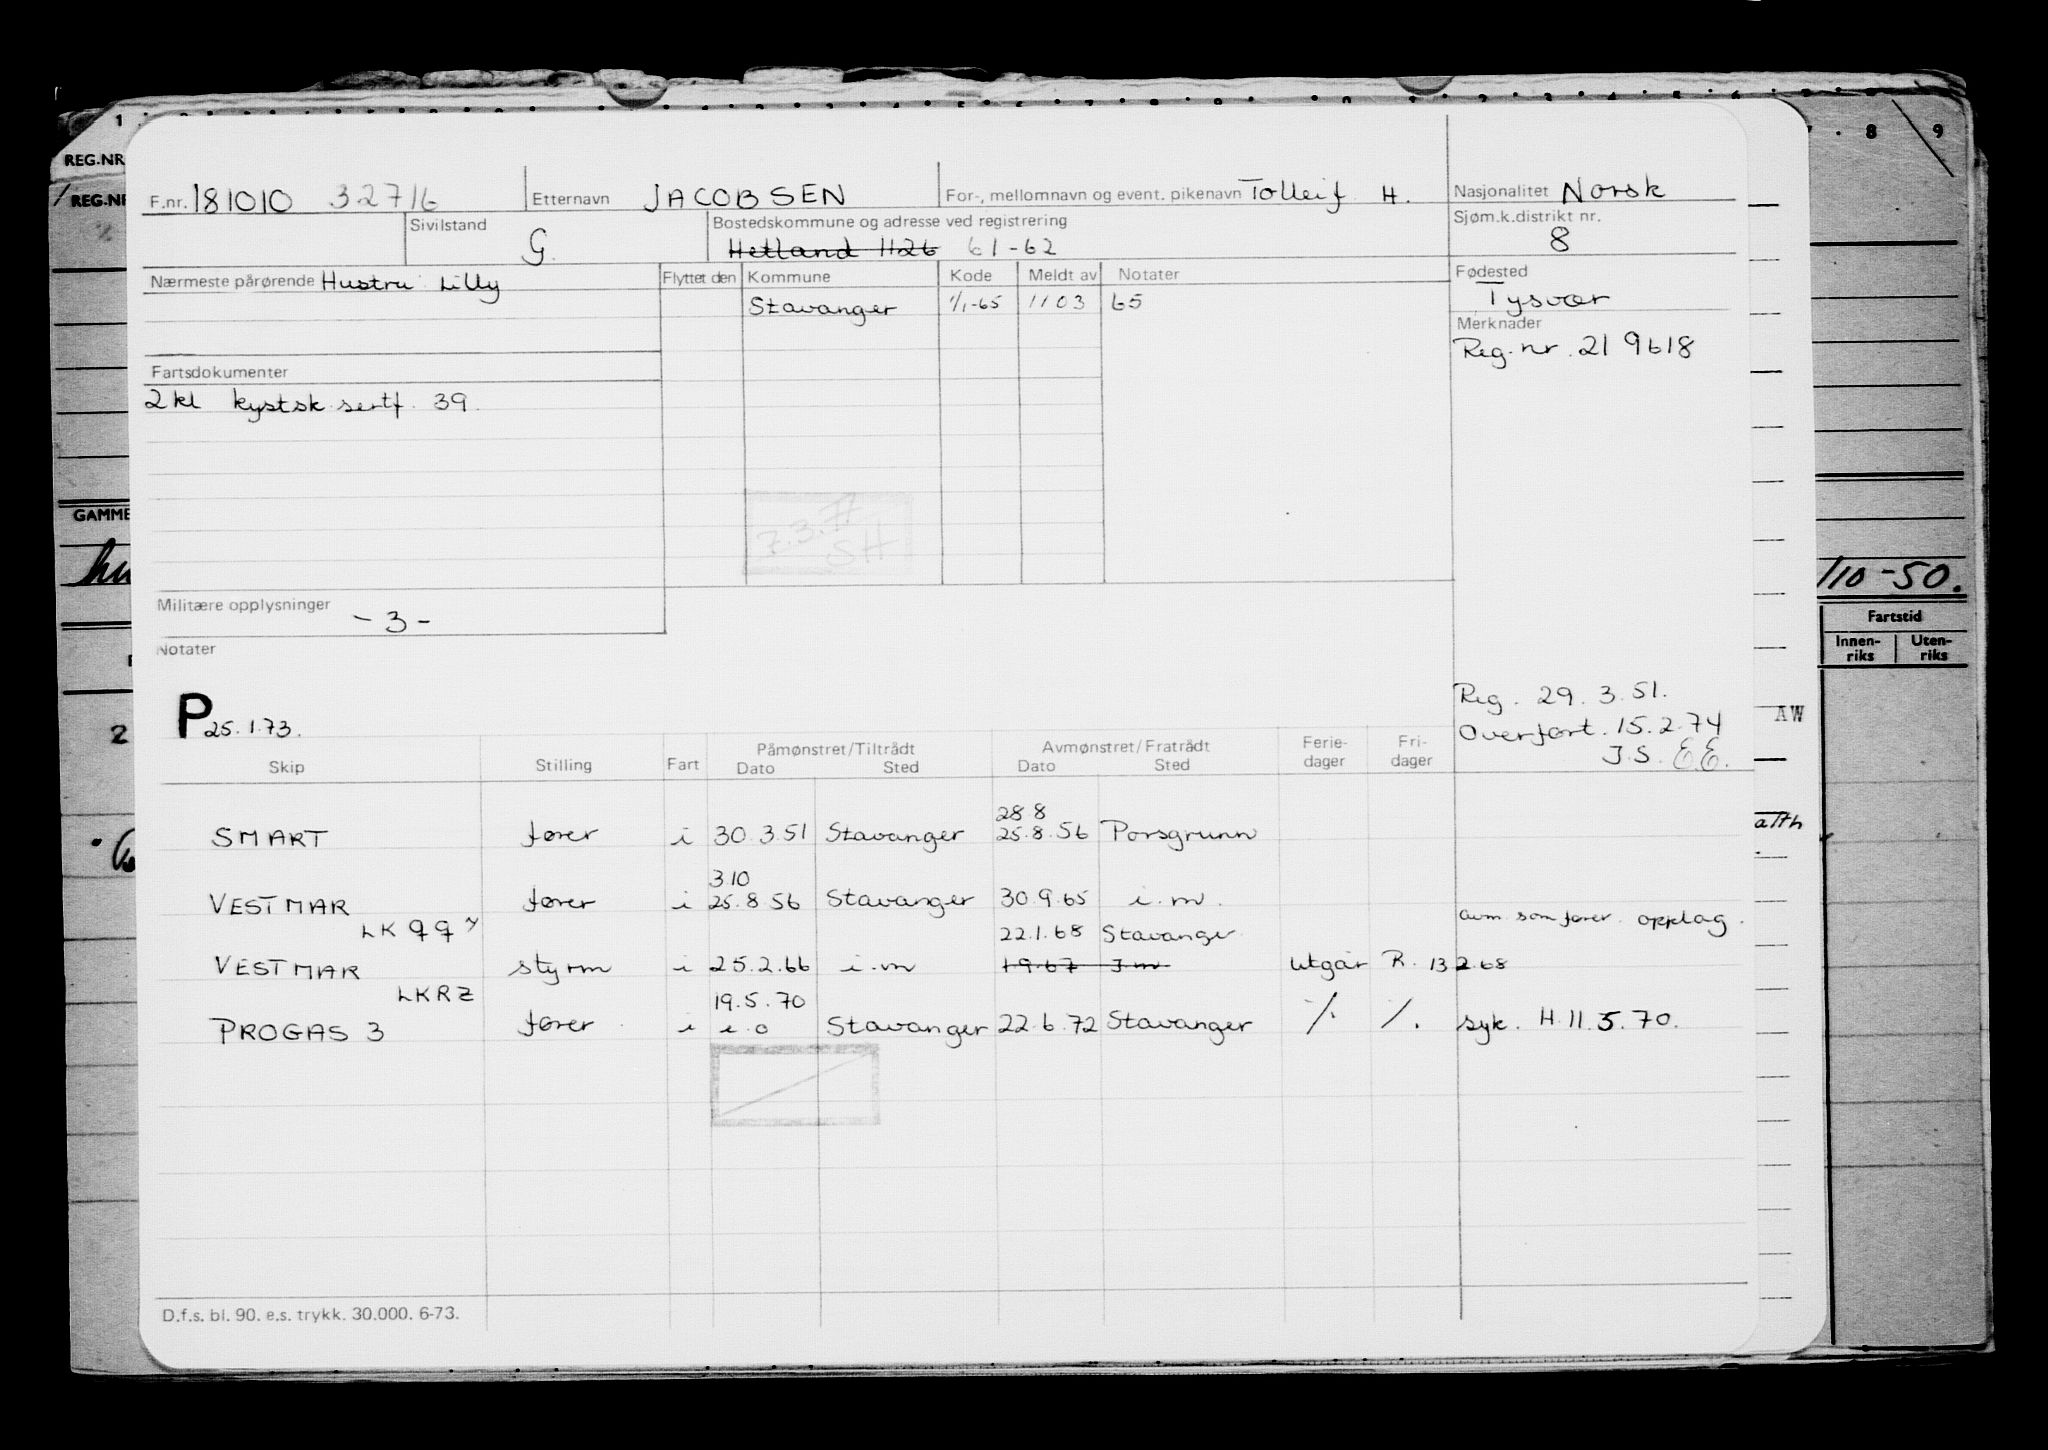 1 2 3 4 5 6 7 8 9 0 1 2 3 4 5 6
8 9
REG.NR
REG.NR
F.nr. 181010 32716 Etternavn JACOBSEN For-, mellomnavn og event. pikenavn Tolleif H. Nasjonalitet Norsk
Sivilstand G. Bostedskommune og adresse ved registrering Sjøm.k.distrikt nr.
Hetland 1126 61-62 8
Nærmeste pårørende Hustru Lilly Flyttet den Kommune Kode Meldt av Notater Fødested
Stavanger 1/1-65 1103 65 Tysvær
Merknader
Reg. nr. 219618
Fartsdokumenter
2 kl kystsk.sertf. 39.
7.3.77
SH
GAMME
/10-50.
Militære opplysninger
-3-
Fartstid
Innen-riks Uten-riks
Notater
P 25.1.73.
Reg. 29.3.51.
Overført. 15.2.74
J.S. E.E.
AW
2
Påmønstret/Tiltrådt Avmønstret/Fratrådt Ferie- Fri-
Skip Stilling Fart Dato Sted Dato Sted dager dager
28 8
SMART fører i 30.3.51 Stavanger 25.8.56 Porsgrunn
3 10
VESTMAR fører i 25.8.56 Stavanger 30.9.65 i.m.
LKQQ avm. som fører. opplag.
22.1.68 Stavanger
VESTMAR styrm i 25.2.66 i.m 1 9 67 I.m utgår R. 13 2.68
LKRZ 19.5.70
PROGAS 3 fører i i.o Stavanger 22.6.72 Stavanger /. /. syk. H.11.5.70.
D.f.s. bl. 90. e.s. trykk. 30.000. 6-73.